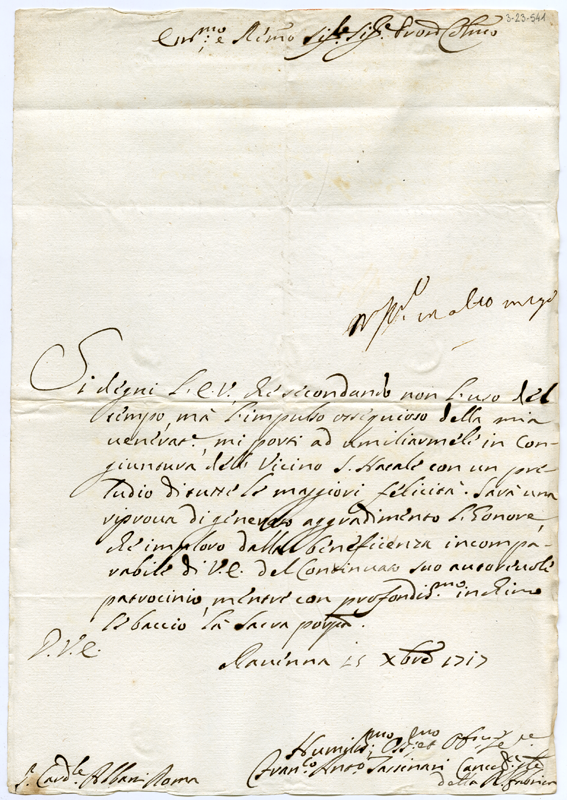 3-23-541
Em.mo e R.imo Sig.re Sig.re Pron Col.mo
in altro
Si degni l'E.V. che secondando non l'uso del
tempo, mà l'impulso ossequioso della mia
venéraz.e mi porti ad umiliarmele in con-
giuntura dell Vicino S. Natale con un pre-
ludio di tutte le maggiori felicità. Sarà una
riprova di generoso aggradimento l'honore,
che imploro dalla beneficenza incompa-
rabile di V.E. del Continuato suo autorevole
patrocinio, mentre con profondis.mo inchino
le baccio la sacra porpra.
D.V.E.
Ravenna 15 Xbre 1717
Humiliss.mo
Franc.o Ant.o
della R. Fabrica
S.r Card.le Albani Roma